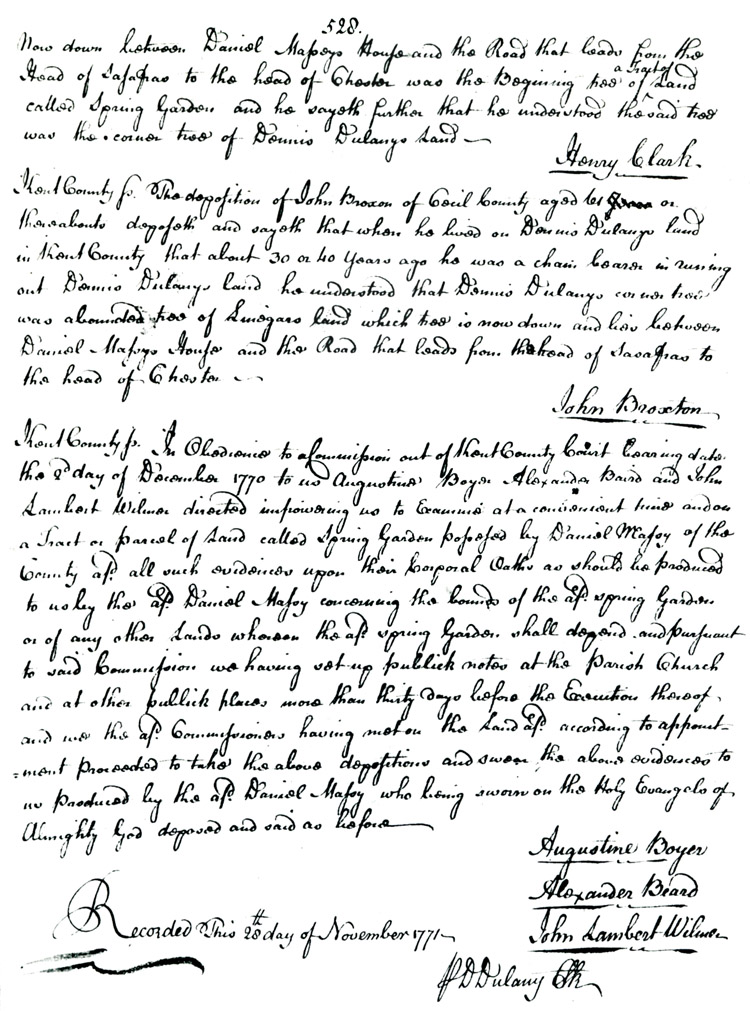 528.
Now down between Daniel Masseys House and the Road that leads from the
Head of Sasafras to the head of Chester was the Begining tree of a Tract of Land
called Spring Garden and he sayeth further that he understood the said tree
was the corner tree of Dennis Dulanys Land
Henry Clark.
Kent County Ss. The deposition of John Broxon of Cecil County aged 61 Years or
thereabouts deposeth and sayeth that when he lived on Dennis Dulanys land
in Kent County that about 30 or 40 Years ago he was a chain bearer in runing
out Dennis Dulanys land he understood that Dennis Dulanys corner tree
was a bounded tree of land which tree is now down and lies between
Daniel Massys House and the Road that leads from the head of Sasafras to
the head of Chester
John Broxton
Kent County Ss. In Obedience to a Commission out of Kent County Court bearing date
the 2d day of December 1770 to us Augustine Boyer Alexander Baird and John
Lambert Wilmer directed impowering us to Examine at a convenient time and on
a Tract or parcel of Land called Spring Garden possesed by Daniel Massy of the
County afd. all such evidences upon their Corporal Oaths as should be produced
to us by the afd. Daniel Massy concerning the bounds of the afd. Spring Garden
or of any other Lands whereon the afd. Spring Garden shall depend and pursuant
to said Commission we having set up publick notes at the Parish Church
and at other publick places more than thirty days before the Execution thereof.
and we the afd. Commissioners having met on the Land afd. according to appoint-
=ment proceeded to take the above depositions and swore the above evidences to
us produced by the afd. Daniel Massy who being sworn on the Holy Evangels of
Almighty God deposed and said as before
Augustine Boyer
Alexander Beard
John Lambert Wilmer
Recorded This 28th day of November 1771
D Dulany Clk